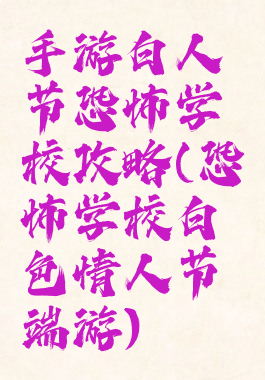 手游白人
节恐怖学
校攻略(恐
怖学校白
色情人节
端游)